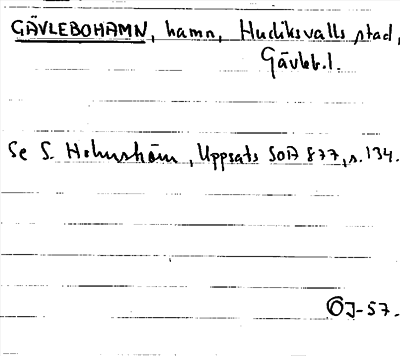 GÄVLEBOHAMN, hamn, Hudiksvalls stad,
Gävleb.l.
Se S. Holmström, Uppsats SOÄ 877, s. 134.
ÖJ-57.